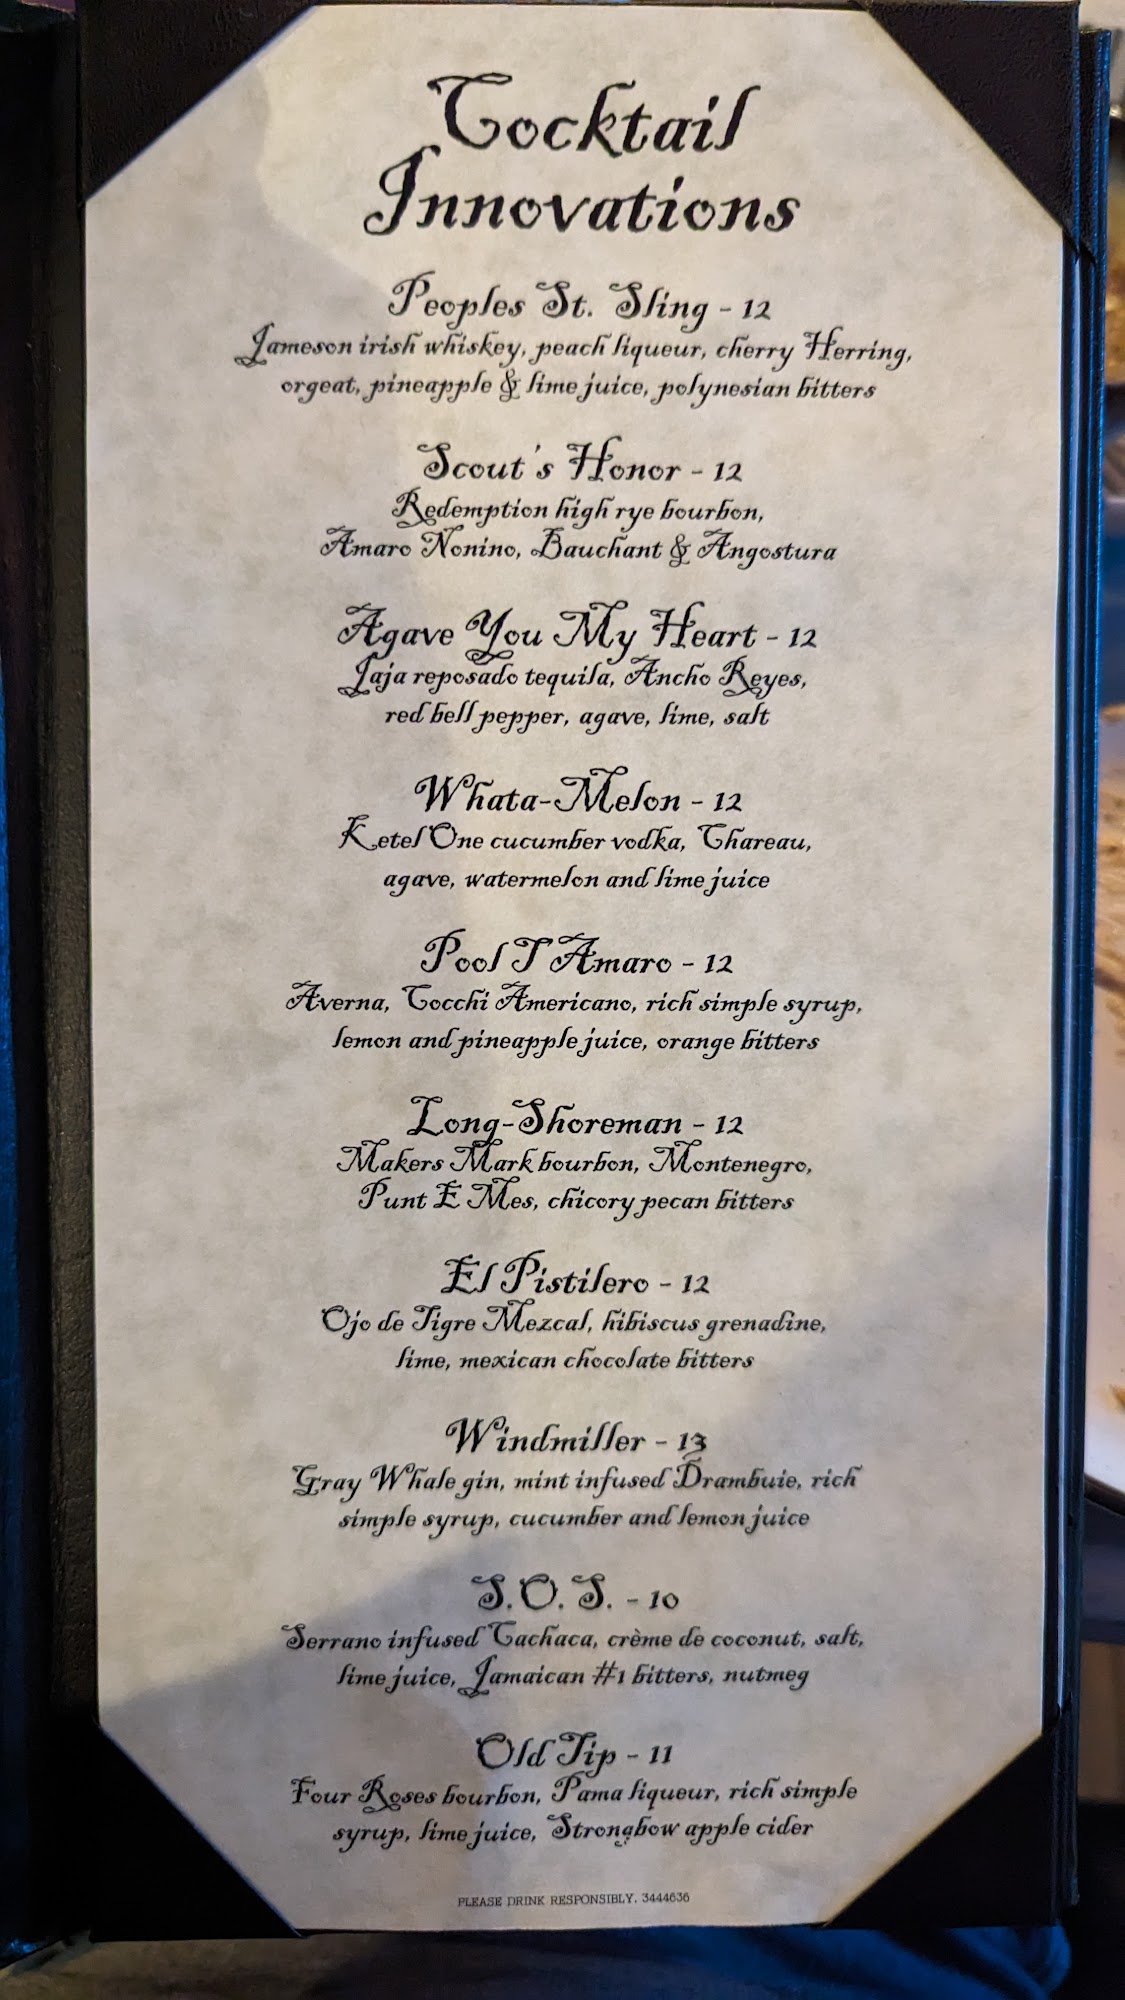 Cocktail
Innovations
Peoples St. Sling - 12
Jameson irish whiskey, peach liqueur, cherry Herring,
orgeat, pineapple & lime juice, polynesian bitters
Scout's Honor - 12
Redemption high rye bourbon,
Amaro Nonino, Bauchant & Angostura
Agave You My Heart - 12
Jaja reposado tequila, Ancho Reyes,
red bell pepper, agave, lime, salt
Whata-Melon - 12
Ketel One cucumber vodka, Chareau,
agave, watermelon and lime juice
Pool T Amaro - 12
Averna, Cocchi Americano, rich simple syrup,
lemon and pineapple juice, orange bitters
Long-Shoreman - 12
Makers Mark bourbon, Montenegro,
Punt E Mes, chicory pecan bitters
El Pistilero - 12
Ojo de Tigre Mezcal, hibiscus grenadine,
lime, mexican chocolate bitters
Windmiller - 13
Gray Whale gin, mint infused Drambuie, rich
simple syrup, cucumber and lemon juice
S.O.S. - 10
Serrano infused Cachaca, crème de coconut, salt,
lime juice, Jamaican #1 bitters, nutmeg
Old Tip - 11
Four Roses bourbon, Pama liqueur, rich simple
syrup, lime juice, Strongbow apple cider
PLEASE DRINK RESPONSIBLY. 3444636